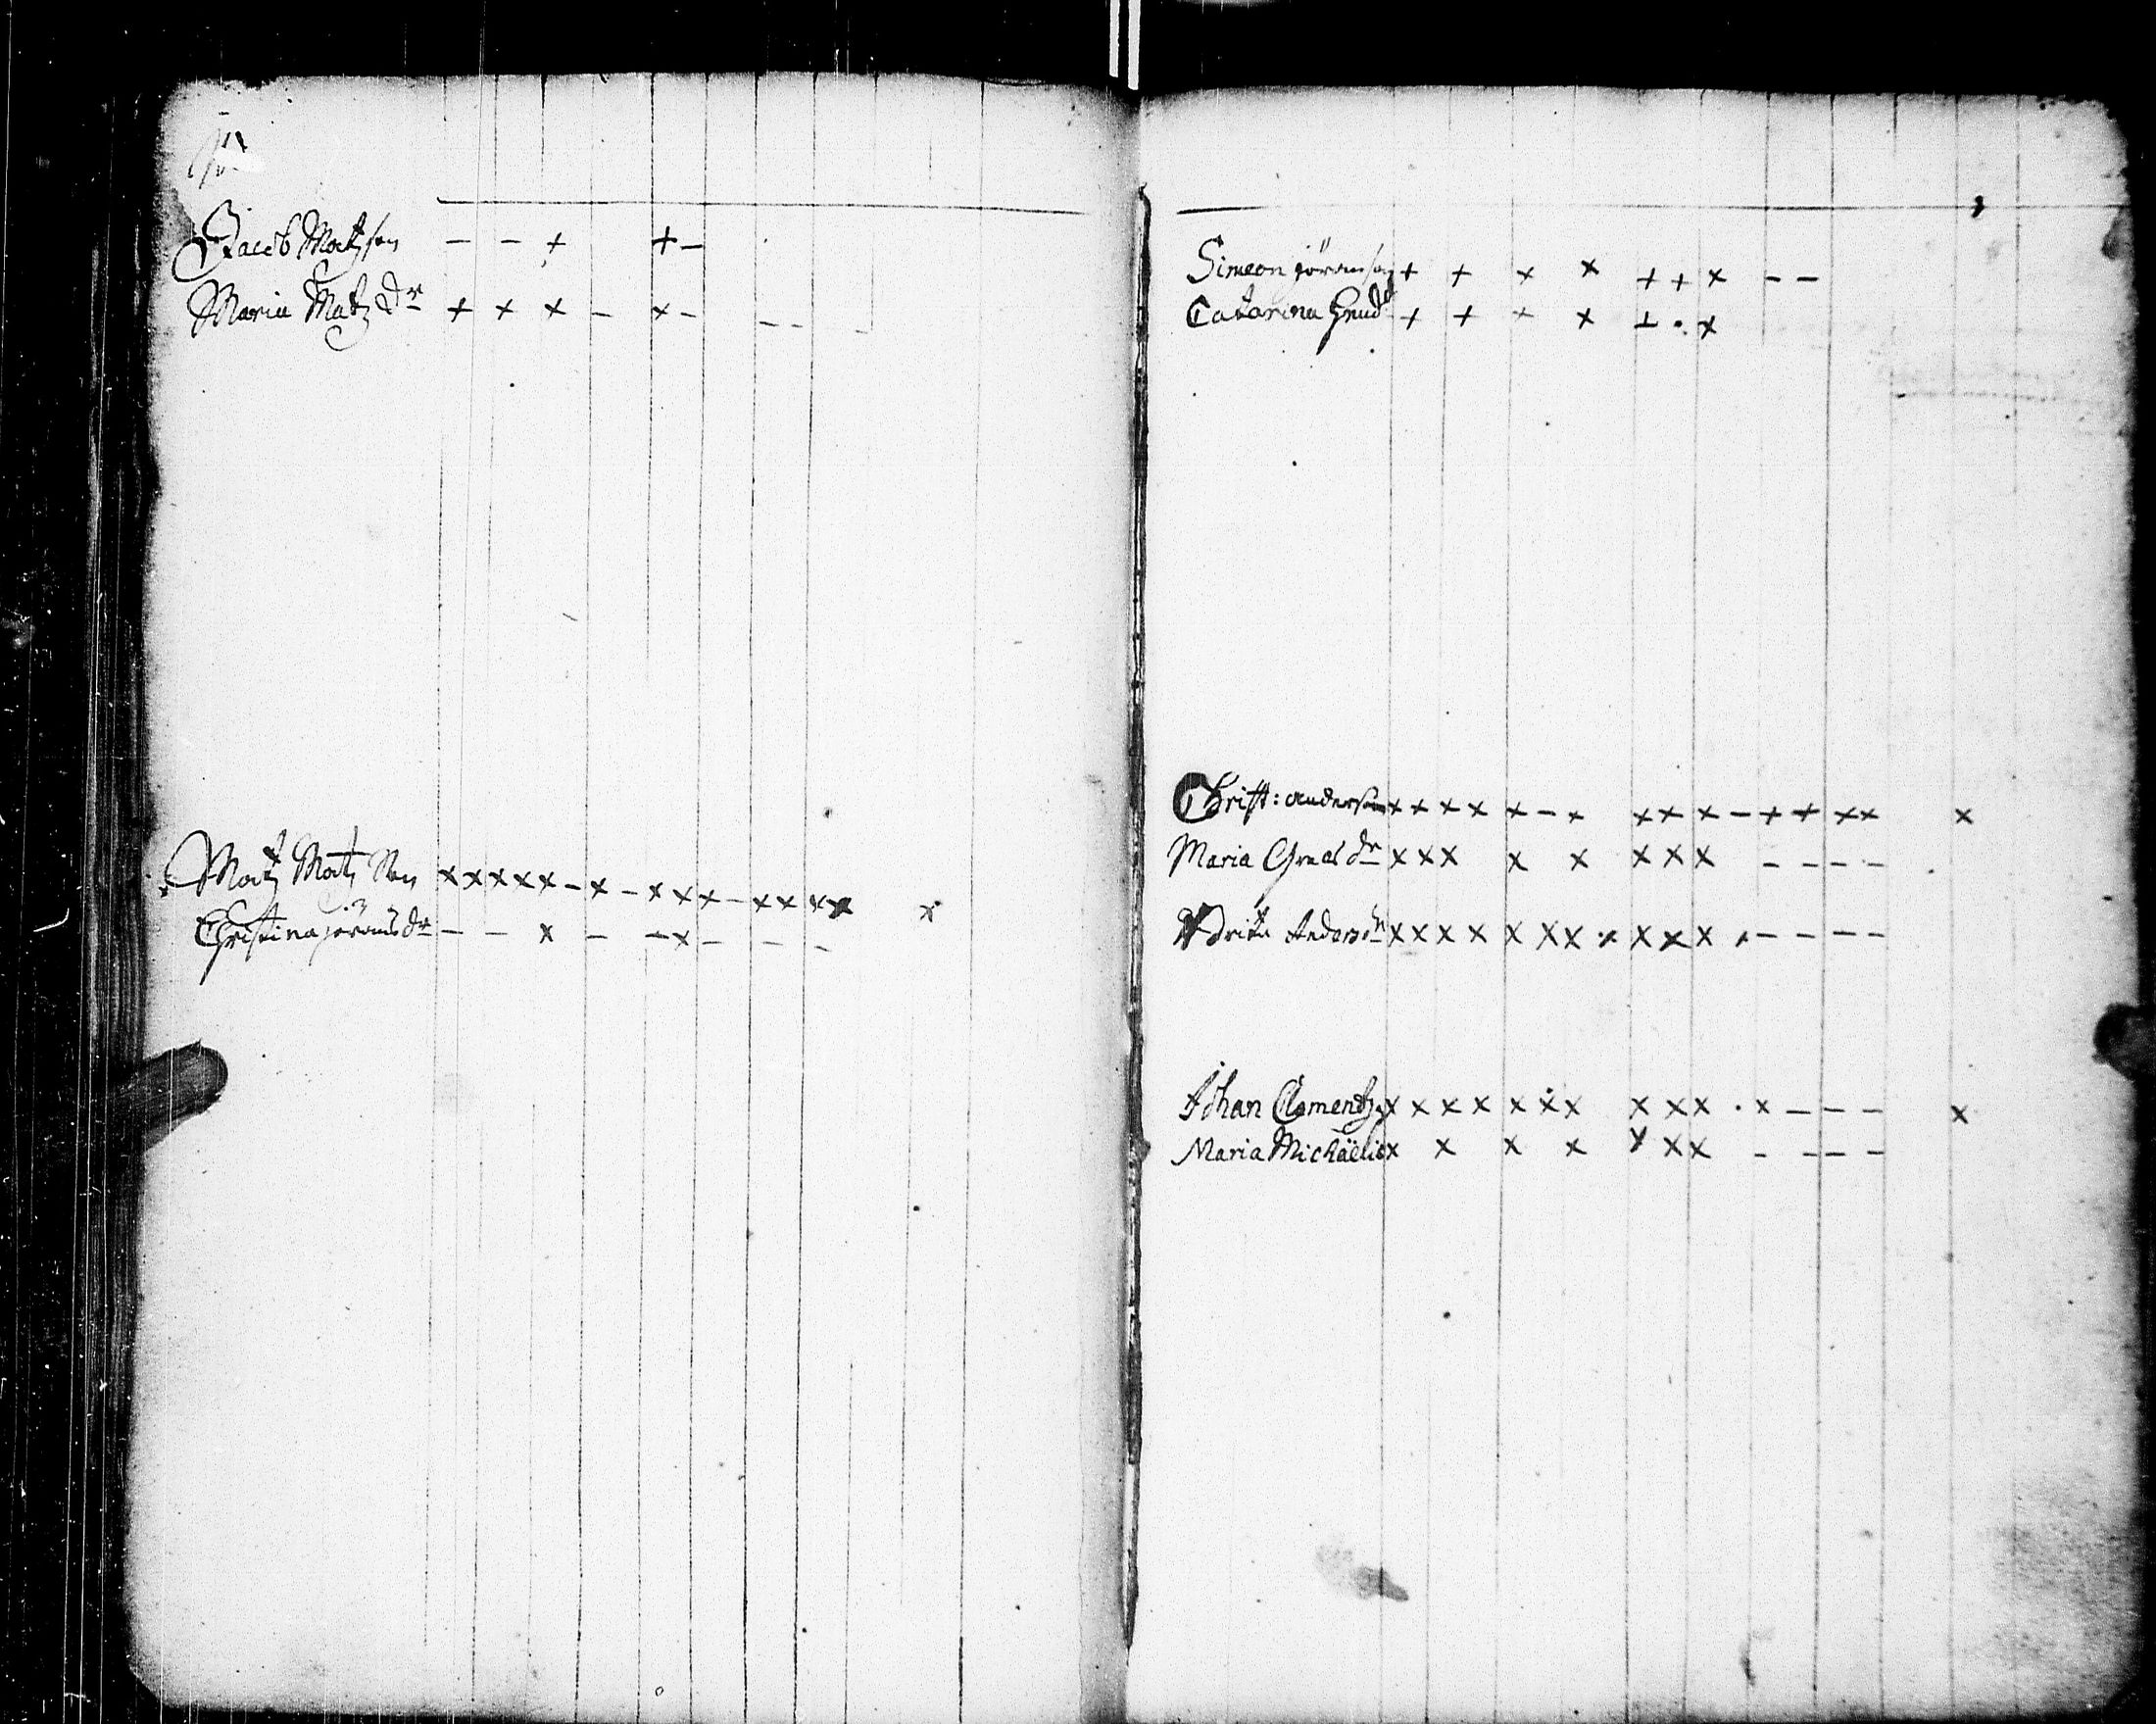 Jacob Matzson – – + + –
Maria Matz dr + x x – x – – – –
Matz Matz Son x x x x x – x – x x x – x x x x x
Christina jörans dr – – x – – x – – – –
Simeon jöranson + + x x + + x – –
Catarina + + + x + . x
Christ: anderson x x x x x – x x x x – + + x x x
Maria dr x x x x x x x x – – – –
Anders dr x x x x x x x x x x x – – – –
Johan Clementz x x x x x x x x x x . x – – – x
Maria Michäelis x x x x x x x – – – –